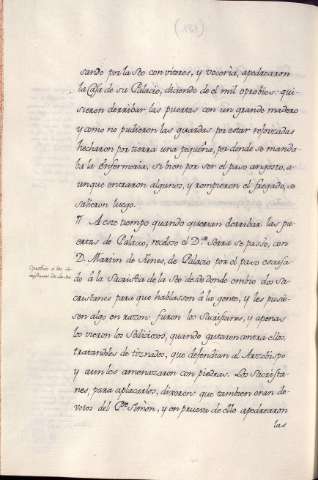 (181)
sando por la Seo con vitores, y vocería, apedrearon
la Casa de su Palacio, diciendo de el mil oprobios: qui-
sieron derribar las puertas con un grande madero
y como no pudieron las guardas por estar reforzadas
hecharon por tierra una pequeña, por donde se manda-
ba la enfermería, si bien por ser el paso angosto, a-
unque entraron algunos, y rompieron el fregado, se
salieron luego.
¶ A este tiempo quando querian derribar las pu-
ertas de Palacio, receloso el D.r se passo, con
D. Martin de Funes, de Palacio por el paso escusa-
do á la Sacristia de la Seo desde donde embio dos Sa-
cristanes para que hablassen á la gente, y les pusie-
sen algo en razon: fueron los Sacristanes, y apenas
los vieron los Sediciosos, quando gritaron contra ellos,
tratandoles de tiznados, que defendian al Arzobispo
y aun los amenazaron con piedras. Los Sacrista-
nes, para aplacarles, dixeron que tambien eran de-
votos del P.e Simon, y en prueva de ello apedrearon
las